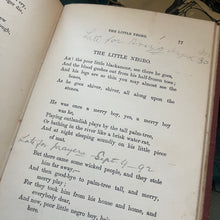 THE LITTLE NEGRO 77
Late for
THE LITTLE NEGRO
AH! the poor little blackamoor, see there he goes,
And the blood gushes out from his half-frozen toes,
And his legs are so thin you may almost see the bone,
As he goes shiver, shiver, all along upon the stones.
He was once a merry boy, you may know,
Playing outlandish plays by the tall palm-tree,
Or bathing in the river like a brisk water-rat,
And at night sleeping soundly on his little piece
Late for prayers Sept 4 - 92
But there came some wicked people, and they stole him far away,—
And then good-bye to palm-tree tall, and merry, merry play;
For they took him from his house and home, and everybody dear,
And now, poor little negro boy, he's come